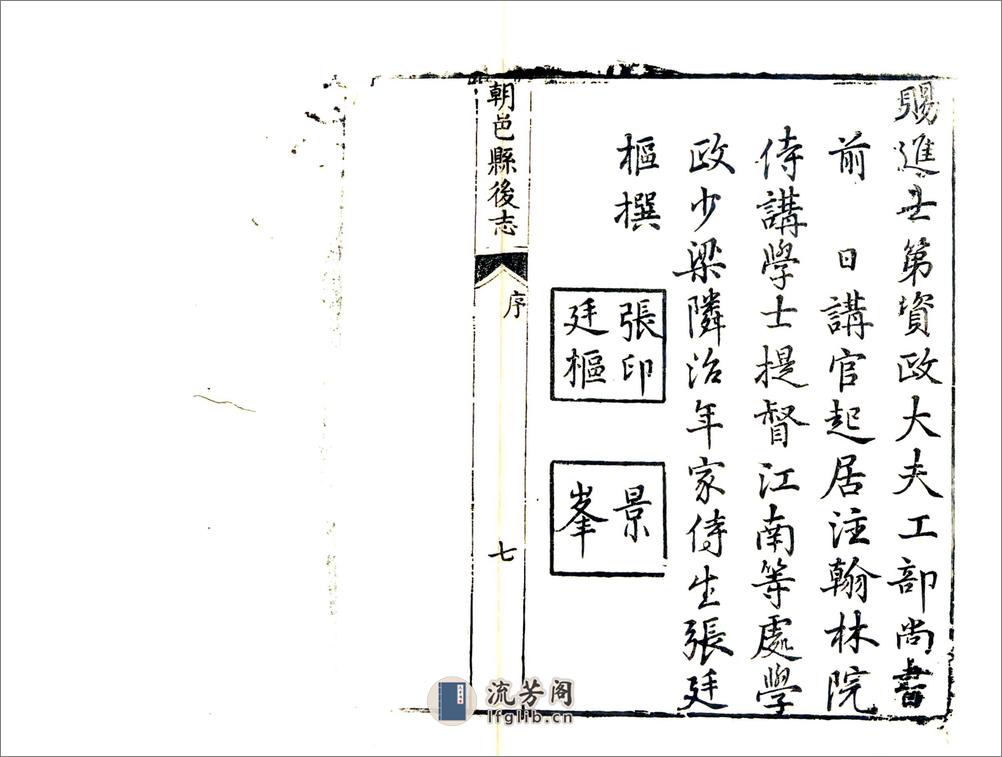 賜進士第資政大夫工部尚書
前　日講官起居注翰林院
侍講學士提督江南等處學
政少梁隣治年家侍生張廷
樞撰
張印
廷樞
景
峯
朝邑縣後志
序
七
流芳阁
lfglib.cn